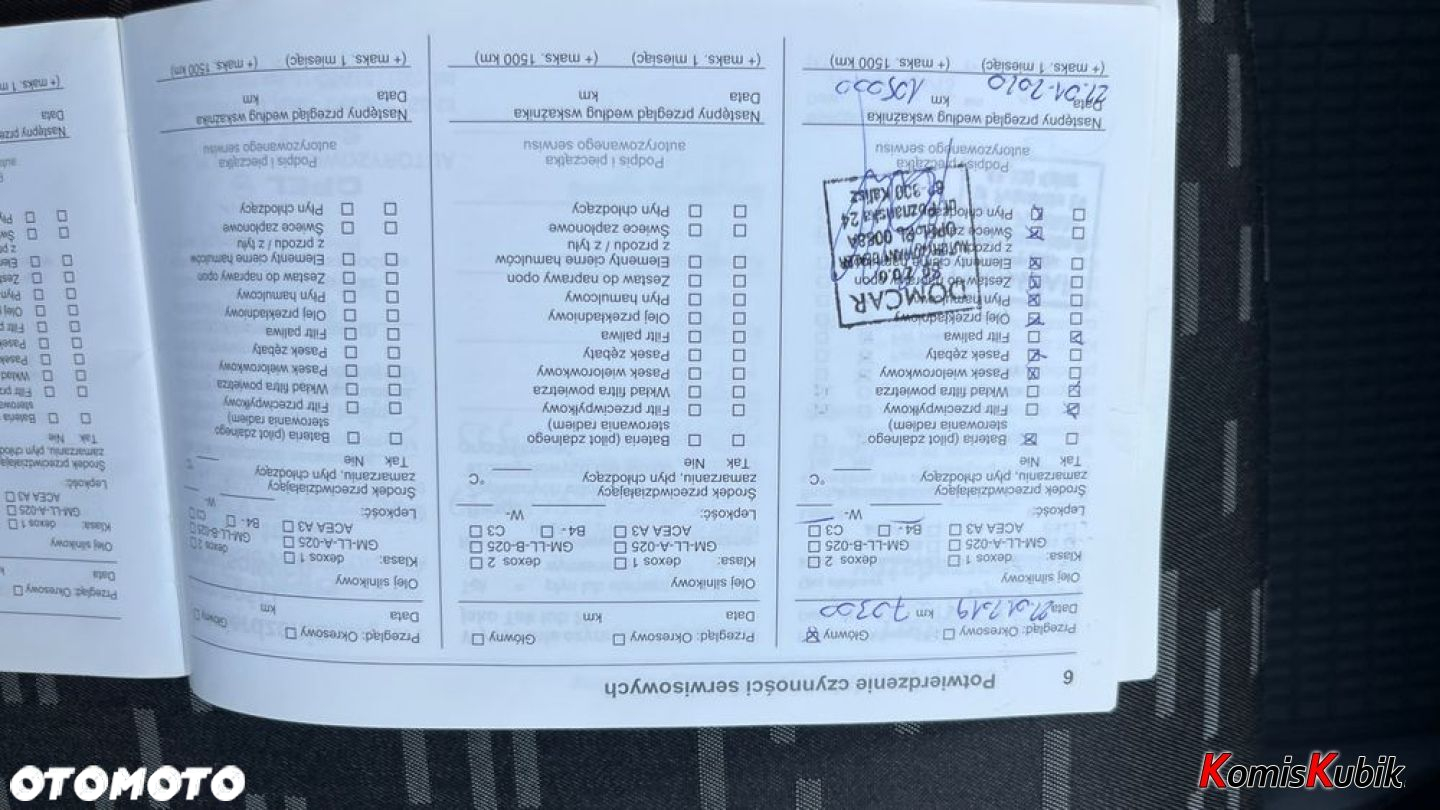 6 Potwierdzenie czynności serwisowych
Przegląd: Okresowy Główny
Data 21.01.2019 km 70300
Olej silnikowy
Klasa: dexos 1 dexos 2
GM-LL-A-025 GM-LL-B-025
ACEA A3 B4 - C3
Lepkość: W-
Środek przeciwdziałający
zamarzaniu, płyn chłodzący °C
Tak Nie
Bateria (pilot zdalnego
sterowania radiem)
Filtr przeciwpyłkowy
Wkład filtra powietrza
Pasek wielorowkowy
Pasek zębaty
Filtr paliwa
Olej przekładniowy
Płyn hamulcowy
Zestaw do naprawy opon
Elementy cierne
z przodu
Świece
Płyn
DOMCAR
OPEL PL 0088A
ul. Poznańska 24
Kalisz
Podpis i pieczątka
autoryzowanego serwisu
Następny przegląd według wskaźnika
Data 21.01.2020 km 105000
(+ maks. 1 miesiąc) (+ maks. 1500 km)
Przegląd: Okresowy Główny
Data km
Olej silnikowy
Klasa: dexos 1 dexos 2
GM-LL-A-025 GM-LL-B-025
ACEA A3 B4 - C3
Lepkość: W-
Środek przeciwdziałający
zamarzaniu, płyn chłodzący °C
Tak Nie
Bateria (pilot zdalnego
sterowania radiem)
Filtr przeciwpyłkowy
Wkład filtra powietrza
Pasek wielorowkowy
Pasek zębaty
Filtr paliwa
Olej przekładniowy
Płyn hamulcowy
Zestaw do naprawy opon
Elementy cierne hamulców
z przodu / z tyłu
Świece zapłonowe
Płyn chłodzący
Podpis i pieczątka
autoryzowanego serwisu
Następny przegląd według wskaźnika
Data km
(+ maks. 1 miesiąc) (+ maks. 1500 km)
Przegląd: Okresowy Główny
Data km
Olej silnikowy
Klasa: dexos 1 dexos 2
GM-LL-A-025 GM-LL-B-025
ACEA A3 B4 - C3
Lepkość: W-
Środek przeciwdziałający
zamarzaniu, płyn chłodzący
Tak Nie
Bateria (pilot zdalnego
sterowania radiem)
Filtr przeciwpyłkowy
Wkład filtra powietrza
Pasek wielorowkowy
Pasek zębaty
Filtr paliwa
Olej przekładniowy
Płyn hamulcowy
Zestaw do naprawy opon
Elementy cierne hamulców
z przodu / z tyłu
Świece zapłonowe
Płyn chłodzący
Podpis i pieczątka
autoryzowanego serwisu
Następny przegląd według wskaźnika
Data km
(+ maks. 1 miesiąc) (+ maks. 1500 km)
Przegląd: Okresowy
Data
Olej silnikowy
Klasa: dexos 1
GM-LL-A-025
ACEA A3
Lepkość:
Środek przeciwdziałający
zamarzaniu, płyn
Tak Nie
Bateria
Data
OTOMOTO
KomisKubik